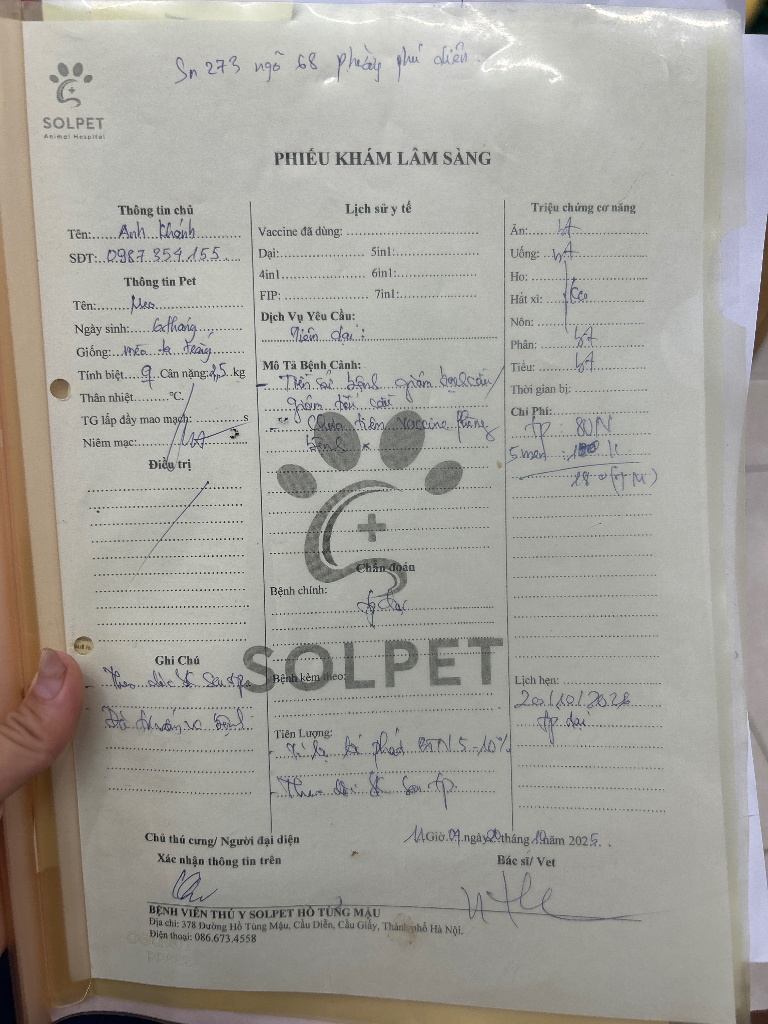 Sn 273 ngõ 68 phường phú diễn.
SOLPET
Animal Hospital
PHIẾU KHÁM LÂM SÀNG
Thông tin chủ
Tên: Anh Khánh
SĐT: 0987.354.155
Thông tin Pet
Tên: Meo
Ngày sinh: 6 tháng
Giống: mèo ta trắng
Tính biệt ♀ Cân nặng: 2,5 kg
Thân nhiệt °C.
TG lấp đầy mao mạch: s
Niêm mạc:
Điều trị
Ghi Chú
- Theo dõi SK sau tp
Đã tư vấn
Lịch sử y tế
Vaccine đã dùng:
Dại: 5in1:
4in1 6in1:
FIP: 7in1:
Dịch Vụ Yêu Cầu:
Tiêm dại:
Mô Tả Bệnh Cảnh:
- Tiền sử bệnh giảm bạch cầu
giảm
- Chưa tiêm vaccine phòng
bệnh
Chẩn đoán
Bệnh chính:
tp dại
SOLPET
Bệnh kèm theo:
Tiên Lượng:
- Tỉ lệ 5-10%
- Theo dõi SK sau tp.
Triệu chứng cơ năng
Ăn: bt
Uống: bt
Ho:
Hắt xì: Ko
Nôn:
Phân: bt
Tiểu: bt
Thời gian bị:
Chi Phí:
tp: 80
5 men:
Lịch hẹn:
20/10/2026
tp dại
Chủ thú cưng/ Người đại diện
Xác nhận thông tin trên
11 Giờ 09 ngày 20 tháng 10 năm 2025.
Bác sĩ/ Vet
BỆNH VIỆN THÚ Y SOLPET HỒ TÙNG MẬU
Địa chỉ: 378 Đường Hồ Tùng Mậu, Cầu Diễn, Cầu Giấy, Thành phố Hà Nội.
Điện thoại: 086.673.4558